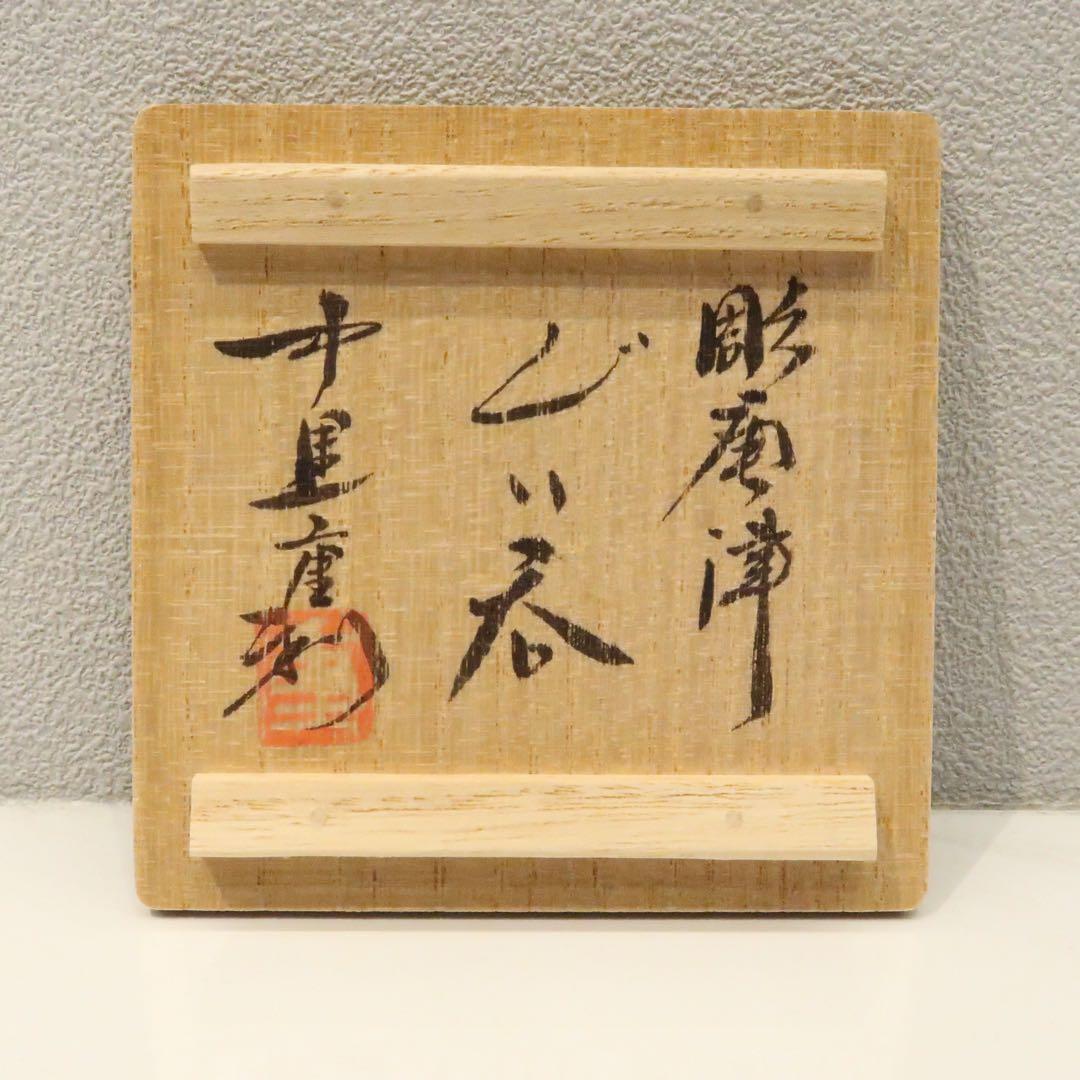 彫唐津
ぐい呑
中里重利